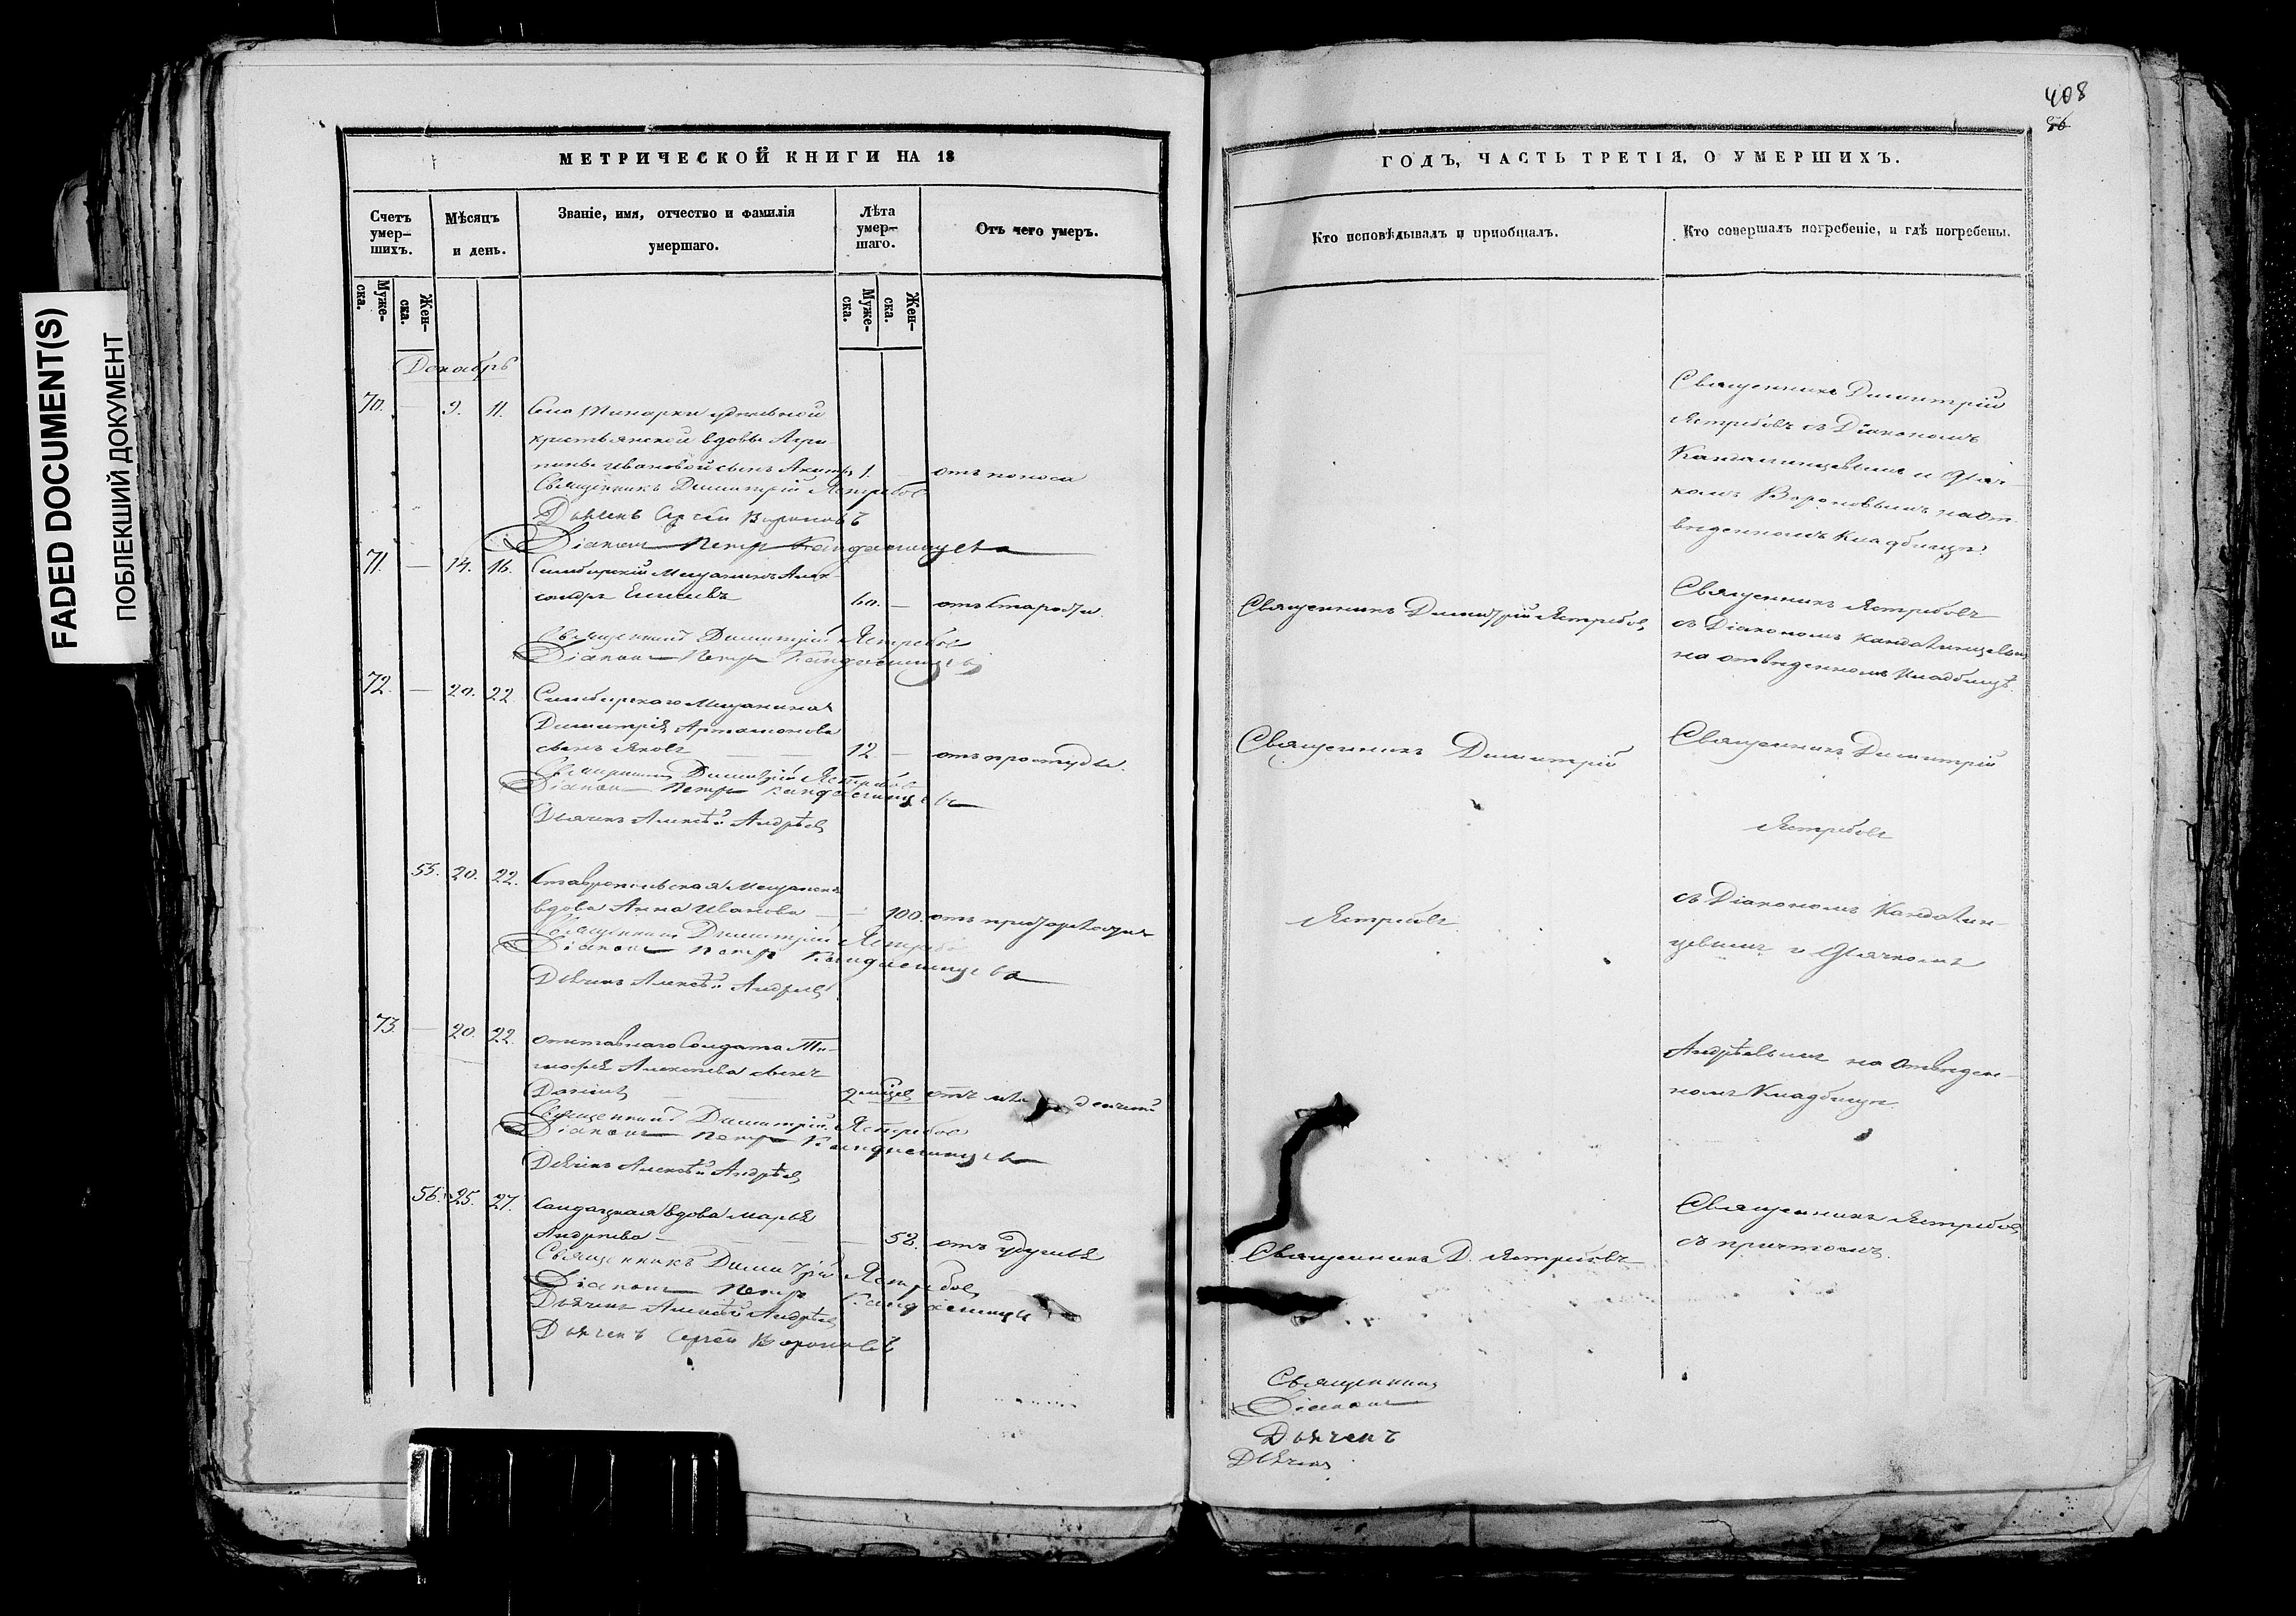 FADED DOCUMENT(S)
ПОБЛЕКШИЙ ДОКУМЕНТ
МЕТРИЧЕСКОЙ КНИГИ НА 18
Счетъ умер-шихъ.
Мѣсяцъ и день.
Званіе, имя, отчество и фамилія умершаго.
Лѣта умер-шаго.
Отъ чего умеръ.
Муже-ска.
Жен-ска.
Муже-ска.
Жен-ска.
Декабрь
70. — 9. 11. Села удѣльной
крестьянской вдовы Агри
пины Ивановой сынъ 1. — отъ поноса
Священникъ Димитрій Ястребовъ
Дьячекъ Сергѣй Вороновъ
Діаконъ Петръ Кандалинцевъ
71. — 14. 16. Симбирскій Мещанинъ Алек-
сандръ Елисеевъ 60. — отъ старости.
Священникъ Димитрій Ястребовъ
Діаконъ Петръ Кандалинцевъ
72. — 20. 22 Симбирскаго Мещанина
Димитрія Артамонова
сынъ Яковъ 12 — отъ простуды.
Священникъ Димитрій Ястребовъ
Діаконъ Петръ Кандалинцевъ
Дьячекъ Алексѣй Андрѣевъ
55. 20. 22. Ставропольская Мещанск
вдова Анна Иванова — — 100. отъ престарелости
Священникъ Димитрій Ястребовъ
Діаконъ Петръ Кандалинцевъ
Дьячекъ Алексѣй Андрѣевъ
73. — 20. 22. отставнаго Солдата Ти-
мофея Алексѣева сынъ
Даніилъ отъ
Священникъ Димитрій Ястребовъ
Діаконъ Петръ Кандалинцевъ
Дьячекъ Алексѣй Андрѣевъ
56. 25. 27. Солдатская вдова Марья
Андреева — 52. отъ удушья
Священникъ Димитрій Ястребовъ
Діаконъ Петръ Кандалинцевъ
Дьячекъ Алексѣй Андрѣевъ
Дьячекъ Сергѣй Вороновъ
408
56
ГОДЪ, ЧАСТЬ ТРЕТІЯ, О УМЕРШИХЪ.
Кто исповѣдывалъ и пріобщалъ.
Кто совершалъ погребеніе, и гдѣ погребены.
Священникъ Димитрій
Ястребовъ съ Діакономъ
Кандалинцевымъ и Дьяч
комъ Вороновымъ на от
веденномъ Кладбищѣ
Священникъ Димитрій Ястребовъ
Священникъ Ястребовъ
съ Діакономъ Кандалинцевымъ
на отведенномъ Кладбищѣ.
Священникъ Димитрій
Ястребовъ
Священникъ Димитрій
Ястребовъ
съ Діакономъ Кандалин-
цевымъ и Дьячкомъ
Андрѣевымъ на отведен-
номъ Кладбищѣ.
Священникъ Д. Ястребовъ
Священникъ Ястребовъ
съ причтомъ.
Священникъ
Діаконъ
Дьячекъ
Дьячекъ